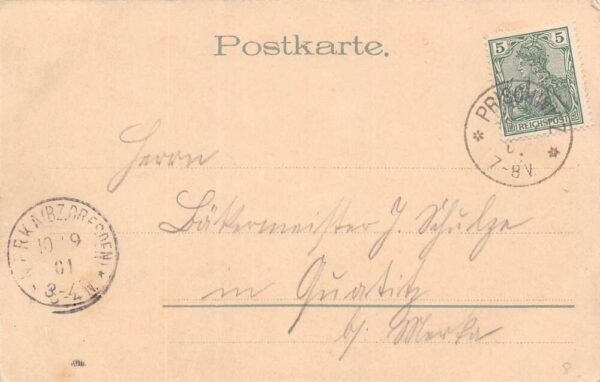 Postkarte.
5
REICHSPOST
PRISCHWITZ
7-8V.
Herrn
Bäckermeister J. Schulze
in Quatitz
b/ Merka
MERKA (BZ. DRESDEN)
10 9
01
3-4N